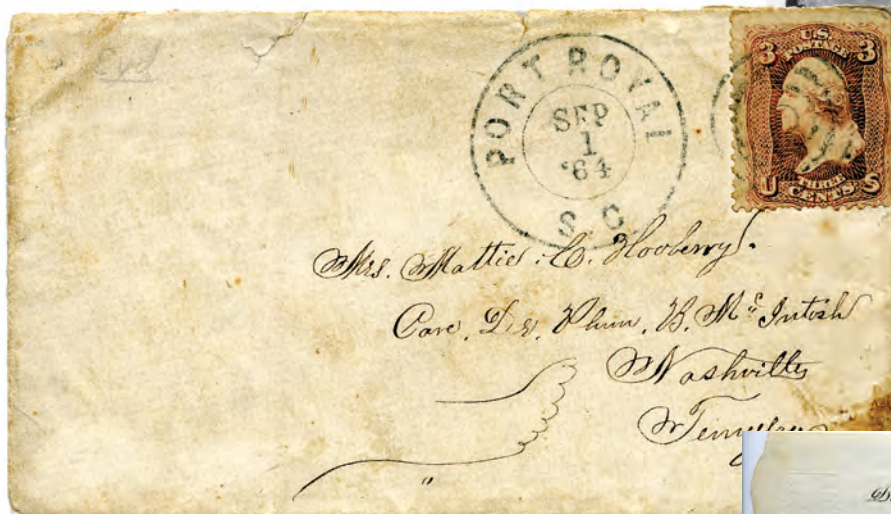 PORT ROYAL
SEP
1
'64
S.C.
3 U.S. POSTAGE 3
U THREE CENTS S
Mrs. Mattie. C.
Care, Dr, Plum, B. McIntosh
Nashville
Tennessee